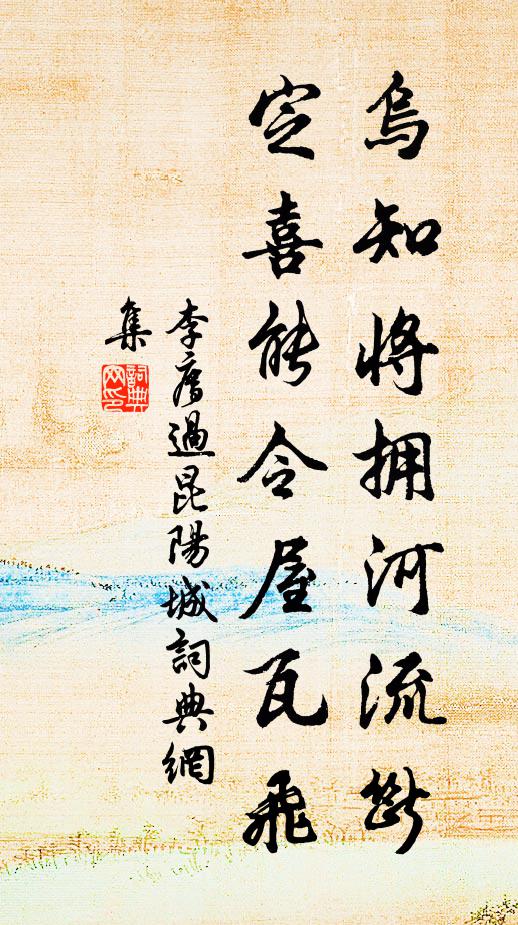 烏知將拥河流斷
定喜能令屋瓦飛
李廌過昆陽城詞典網
集
詞典
网印